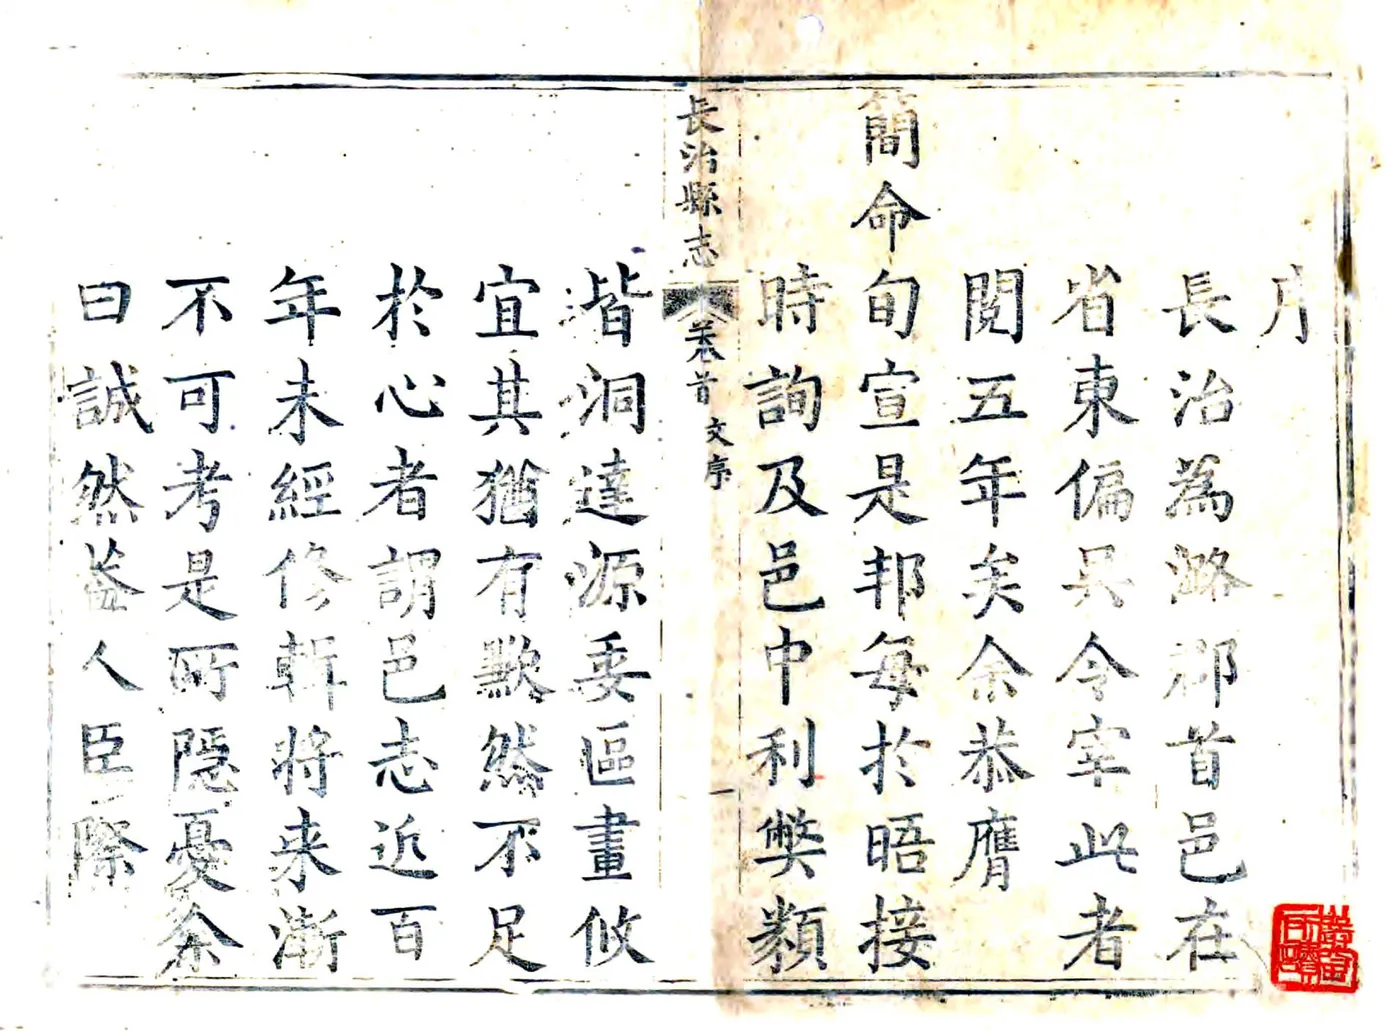 序
長治為潞郡首邑在
省東偏吳令宰此者
閱五年矣余恭膺
簡命旬宣是邦每於晤接
時詢及邑中利弊類
長治縣志 卷首 文序 一
皆洞達源委區畫攸
宜其猶有歉然不足
於心者謂邑志近百
年未經修輯將来漸
不可考是所隱憂余
曰誠然蓋人臣際